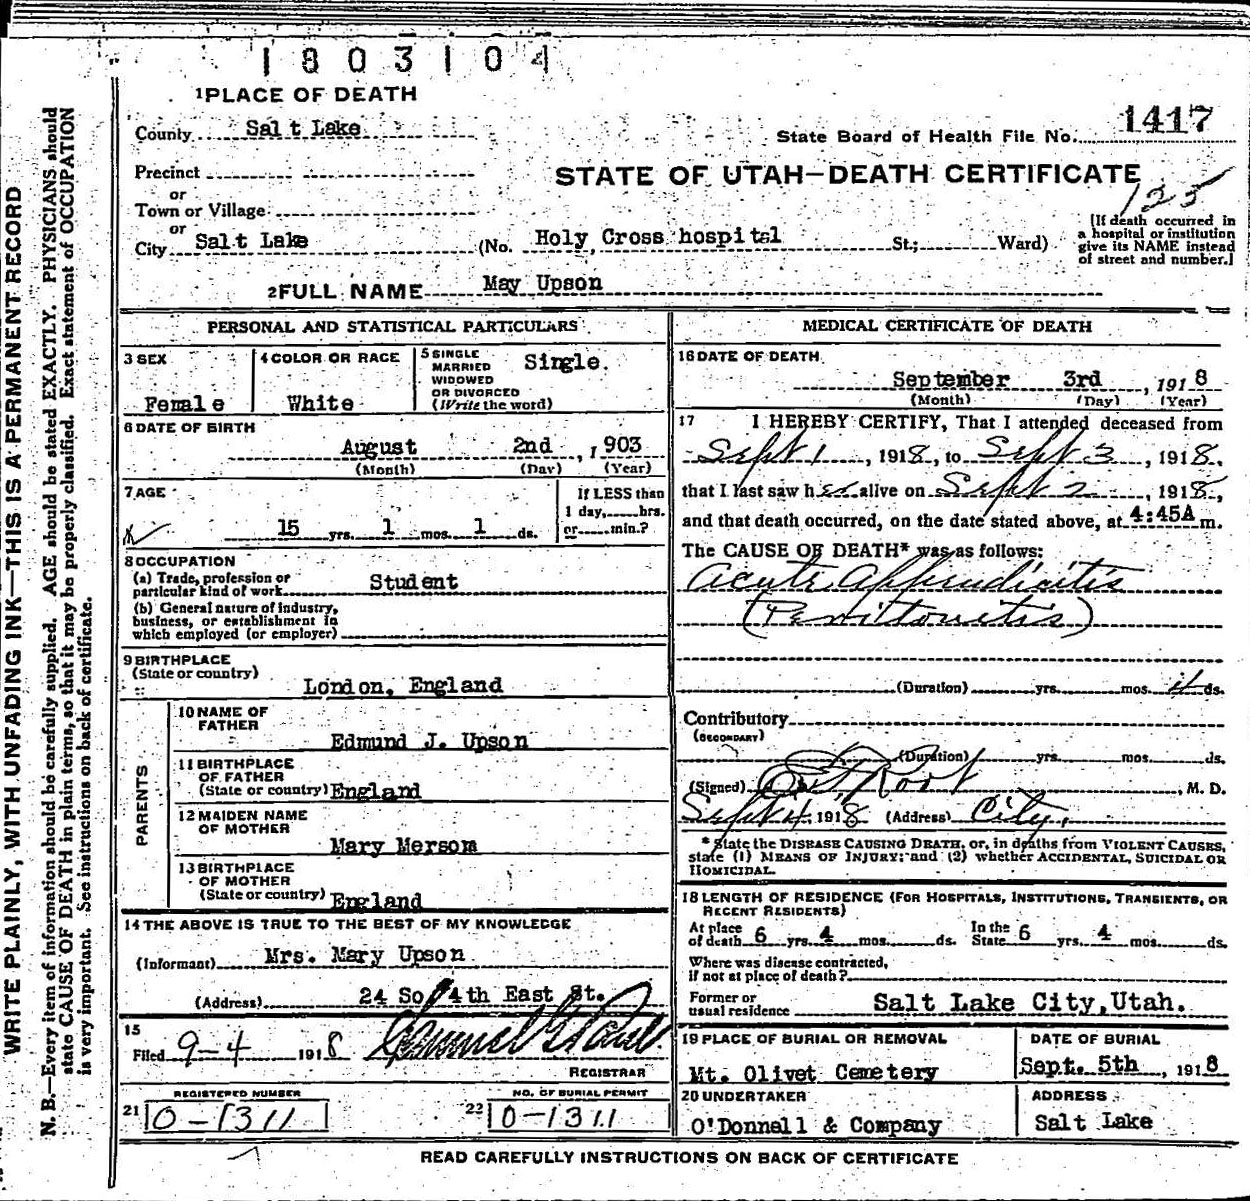 1803104
1 PLACE OF DEATH
County Salt Lake
State Board of Health File No. 1417
Precinct
STATE OF UTAH—DEATH CERTIFICATE
or
125
Town or Village
or
City Salt Lake (No. Holy Cross hospital St.; Ward)
[If death occurred in
a hospital or institution
give its NAME instead
of street and number.]
2 FULL NAME May Upson
PERSONAL AND STATISTICAL PARTICULARS
3 SEX
Female
4 COLOR OR RACE
White
5 SINGLE
MARRIED
WIDOWED
OR DIVORCED
(Write the word)
Single.
6 DATE OF BIRTH
August 2nd, 1903
(Month) (Day) (Year)
7 AGE
15 yrs. 1 mos. 1 ds.
If LESS than
1 day, hrs.
or min.?
8 OCCUPATION
(a) Trade, profession or
particular kind of work Student
(b) General nature of industry,
business, or establishment in
which employed (or employer)
9 BIRTHPLACE
(State or country)
London, England
PARENTS
10 NAME OF
FATHER
Edmund J. Upson
11 BIRTHPLACE
OF FATHER
(State or country) England
12 MAIDEN NAME
OF MOTHER
Mary Mersom
13 BIRTHPLACE
OF MOTHER
(State or country) England
14 THE ABOVE IS TRUE TO THE BEST OF MY KNOWLEDGE
(Informant) Mrs. Mary Upson
(Address) 24 So 4th East St.
15
Filed 9-4 1918
REGISTRAR
REGISTERED NUMBER
21 0-1311
NO. OF BURIAL PERMIT
22 0-1311
MEDICAL CERTIFICATE OF DEATH
16 DATE OF DEATH
September 3rd, 1918
(Month) (Day) (Year)
17 I HEREBY CERTIFY, That I attended deceased from
Sept 1, 1918, to Sept 3, 1918,
that I last saw her alive on Sept 2, 1918,
and that death occurred, on the date stated above, at 4:45A m.
The CAUSE OF DEATH* was as follows:
Acute Appendicitis
(Peritonitis)
(Duration) yrs. mos. 4 ds.
Contributory
(SECONDARY)
(Duration) yrs. mos. ds.
(Signed) Root, M. D.
Sept 4, 1918 (Address) City.
* State the DISEASE CAUSING DEATH, or, in deaths from VIOLENT CAUSES,
state (1) MEANS OF INJURY; and (2) whether ACCIDENTAL, SUICIDAL OR
HOMICIDAL.
18 LENGTH OF RESIDENCE (FOR HOSPITALS, INSTITUTIONS, TRANSIENTS, OR
RECENT RESIDENTS)
At place
of death 6 yrs. 4 mos. ds.
In the
State 6 yrs. 4 mos. ds.
Where was disease contracted,
if not at place of death?
Former or
usual residence Salt Lake City, Utah.
19 PLACE OF BURIAL OR REMOVAL
Mt. Olivet Cemetery
DATE OF BURIAL
Sept. 5th, 1918
20 UNDERTAKER
O'Donnell & Company
ADDRESS
Salt Lake
READ CAREFULLY INSTRUCTIONS ON BACK OF CERTIFICATE
WRITE PLAINLY, WITH UNFADING INK—THIS IS A PERMANENT RECORD
N. B.—Every item of information should be carefully supplied. AGE should be stated EXACTLY. PHYSICIANS should
state CAUSE OF DEATH in plain terms, so that it may be properly classified. Exact statement of OCCUPATION
is very important. See instructions on back of certificate.